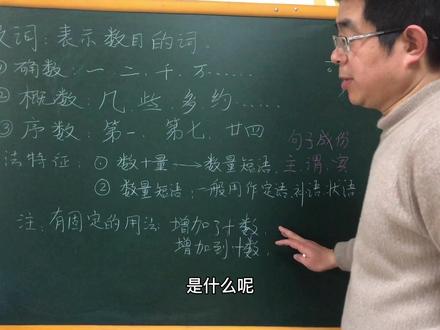 数词：表示数目的词．
①确数：一．二．千．万……
②概数：几．些．多．约……
③序数：第一．第七．廿四
句子成份
法特征：①数十量→数量短语．主．谓．宾
②数量短语：一般用作定语．补语．状语
注：有固定的用法：增加了十数．
增加到十数．
是什么呢